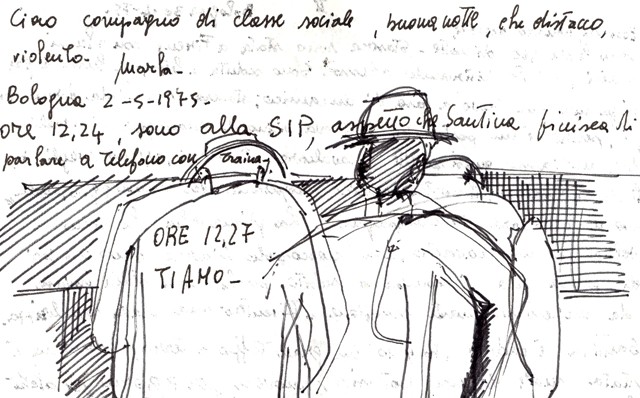 Ciao compagno di classe sociale, buona notte, che distacco,
violento.
Marta.
Bologna 2-5-1975.
ore 12,24, sono alla SIP, aspetto che Santina finisca di
parlare a telefono con traina.
ORE 12,27
TI AMO_